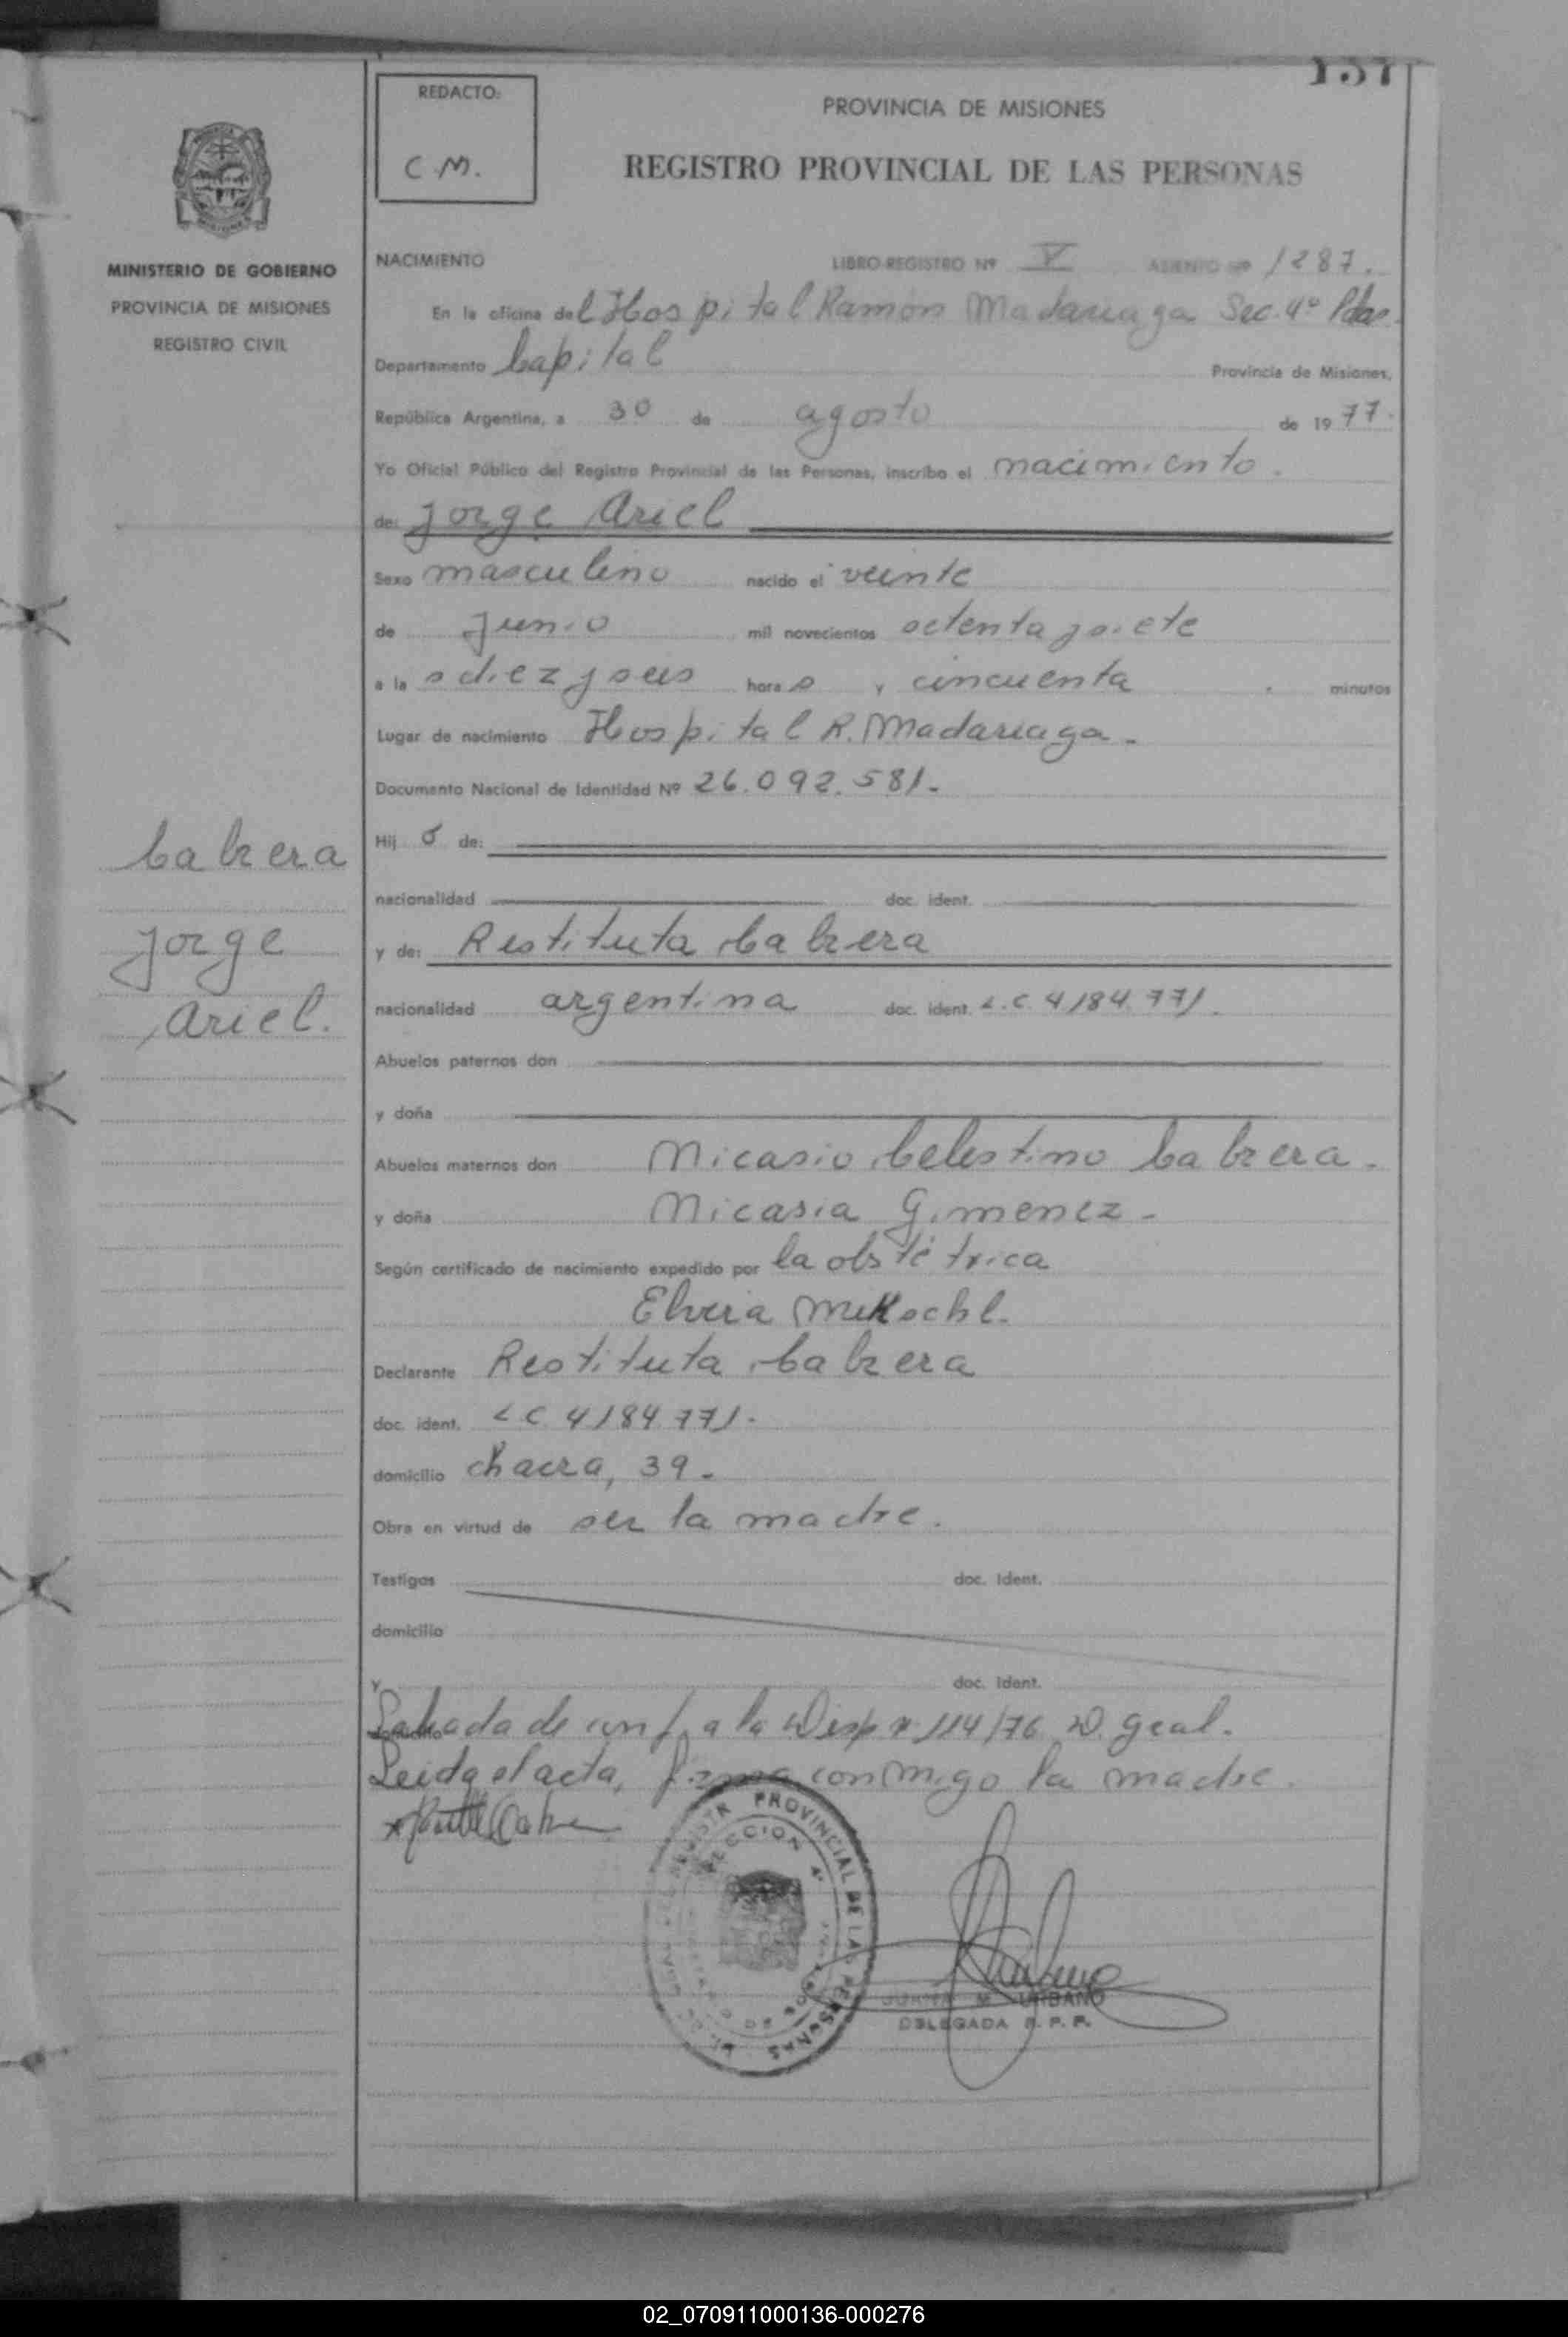 157
REDACTO:
C.M.
PROVINCIA DE MISIONES
REGISTRO PROVINCIAL DE LAS PERSONAS
MINISTERIO DE GOBIERNO
PROVINCIA DE MISIONES
REGISTRO CIVIL
NACIMIENTO LIBRO-REGISTRO Nº V ASIENTO Nº 1287.
En la oficina del Hospital Ramón Madariaga Sec. 4º Pdas.
Departamento Capital Provincia de Misiones,
República Argentina, a 30 de agosto de 1977.
Yo Oficial Público del Registro Provincial de las Personas, inscribo el nacimiento.
de: Jorge Ariel
Sexo masculino nacido el veinte
de junio mil novecientos setenta y siete
a las diez y seis horas y cincuenta minutos
Lugar de nacimiento Hospital R. Madariaga.
Documento Nacional de Identidad Nº 26.092.581.
Hijo de:
nacionalidad doc. ident.
y de: Restituta Cabrera
nacionalidad argentina doc. ident. L.C. 4184.771.
Abuelos paternos don
y doña
Abuelos maternos don Nicasio Celestino Cabrera.
y doña Nicasia Gimenez.
Según certificado de nacimiento expedido por la obstétrica
Elvira
Declarante Restituta Cabrera
doc. ident. LC. 4184.771.
domicilio chacra, 39.
Obra en virtud de ser la madre.
Testigos doc. Ident.
domicilio
Y doc. Ident.
de conf. a la Disp nº 114/76 D. gral.
Leida el acta, firma conmigo la madre.
Cabrera
Jorge
Ariel.
PROVINCIAL DE LAS PERSONAS
SECCION 4ª
JUANA M. URBANO
DELEGADA R. P. P.
02_070911000136-000276